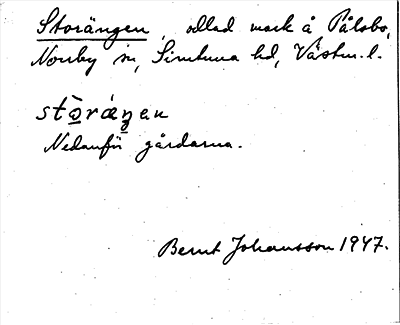 Storängen, odlad mark å Pålsbo,
Norrby sn, Simtuna hd, Västm. l.
stòráŋen
Nedanför gårdarna.
Bernt Johansson 1947.